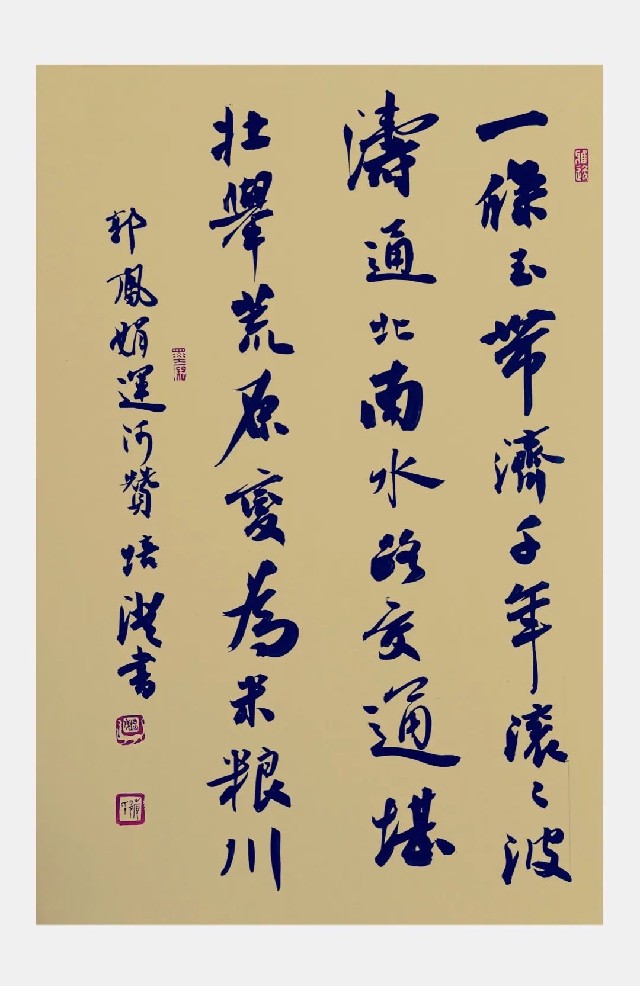 一條玉带濟千年滚〻波
濤通北南水路交通堪
壮舉荒原變為米粮川
郭鳳娟運河贊培洪书